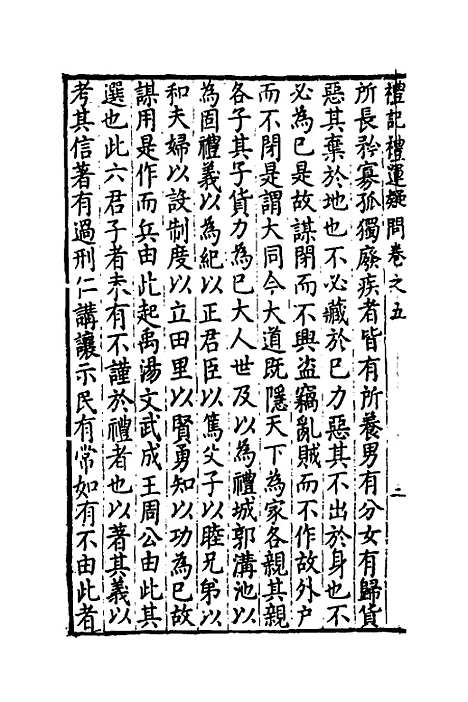 禮記禮運疑問卷之五
二
所長矜寡孤獨廢疾者皆有所養男有分女有歸貨
惡其棄於地也不必藏於己力惡其不出於身也不
必為己是故謀閉而不興盜竊亂賊而不作故外户
而不閉是謂大同今大道既隱天下為家各親其親
各子其子貨力為己大人世及以為禮城郭溝池以
為固禮義以為紀以正君臣以篤父子以睦兄弟以
和夫婦以設制度以立田里以賢勇知以功為己故
謀用是作而兵由此起禹湯文武成王周公由此其
選也此六君子者未有不謹於禮者也以著其義以
考其信著有過刑仁講讓示民有常如有不由此者